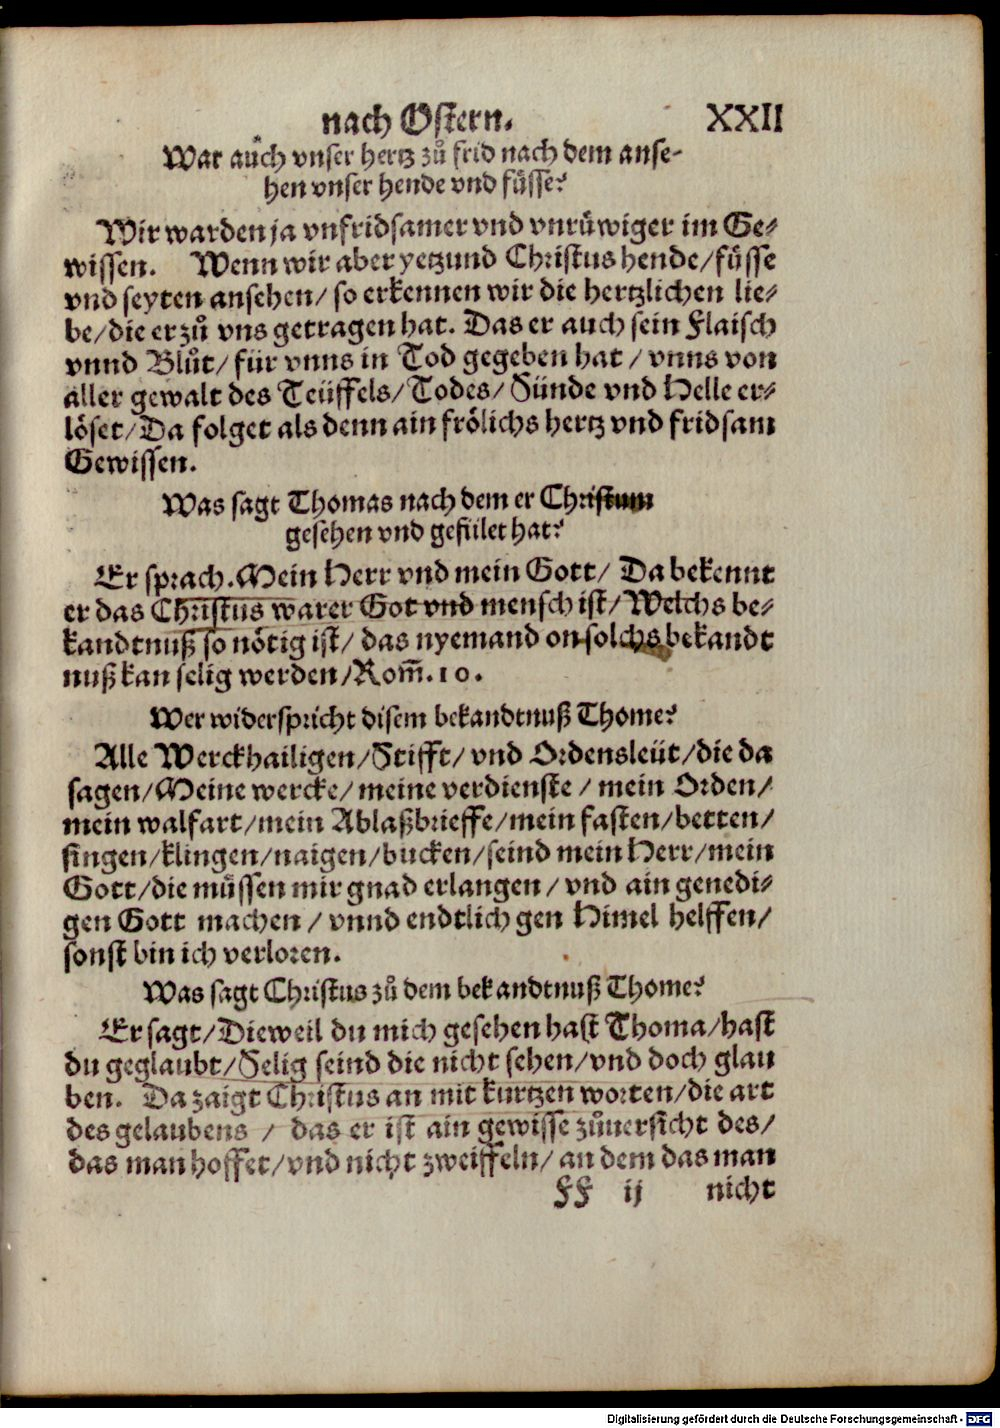 nach Ostern. XXII
War auch vnser hertz zů frid nach dem anse-
hen vnser hende vnd füsse?
Wir warden ja vnfridsamer vnd vnrůwiger im Ge-
wissen. Wenn wir aber yetzund Christus hende/füsse
vnd seyten ansehen/ so erkennen wir die hertzlichen lie-
be/die er zů vns getragen hat. Das er auch sein Flaisch
vnnd Blůt/ für vnns in Tod gegeben hat / vnns von
aller gewalt des Teüffels/Todes/ Sünde vnd Helle er-
löset/Da folget als denn ain frölichs hertz vnd fridsam
Gewissen.
Was sagt Thomas nach dem er Christum
gesehen vnd gefület hat?
Er sprach. Mein Herr vnd mein Gott/ Da bekennt
er das Christus warer Got vnd mensch ist/ Welchs be-
kandtnuß so nötig ist/ das nyemand on solchs bekandt
nuß kan selig werden/Rom̃. 10.
Wer widerspricht disem bekandtnuß Thome?
Alle Werckhailigen/Stifft/ vnd Ordensleüt/die da
sagen/Meine wercke/ meine verdienste / mein Orden/
mein walfart/mein Ablaßbrieffe/mein fasten/betten/
singen/klingen/naigen/bucken/seind mein Herr/mein
Gott/die müssen mir gnad erlangen / vnd ain genedi-
gen Gott machen / vnnd endtlich gen Himel helffen/
sonst bin ich verloren.
Was sagt Christus zů dem bekandtnuß Thome?
Er sagt/Dieweil du mich gesehen hast Thoma/hast
du geglaubt/Selig seind die nicht sehen/vnd doch glau
ben. Da zaigt Christus an mit kurtzen worten/die art
des gelaubens / das er ist ain gewisse zůuersicht des/
das man hoffet/vnd nicht zweiffeln/ an dem das man
FF ij nicht
Digitalisierung gefördert durch die Deutsche Forschungsgemeinschaft - DFG